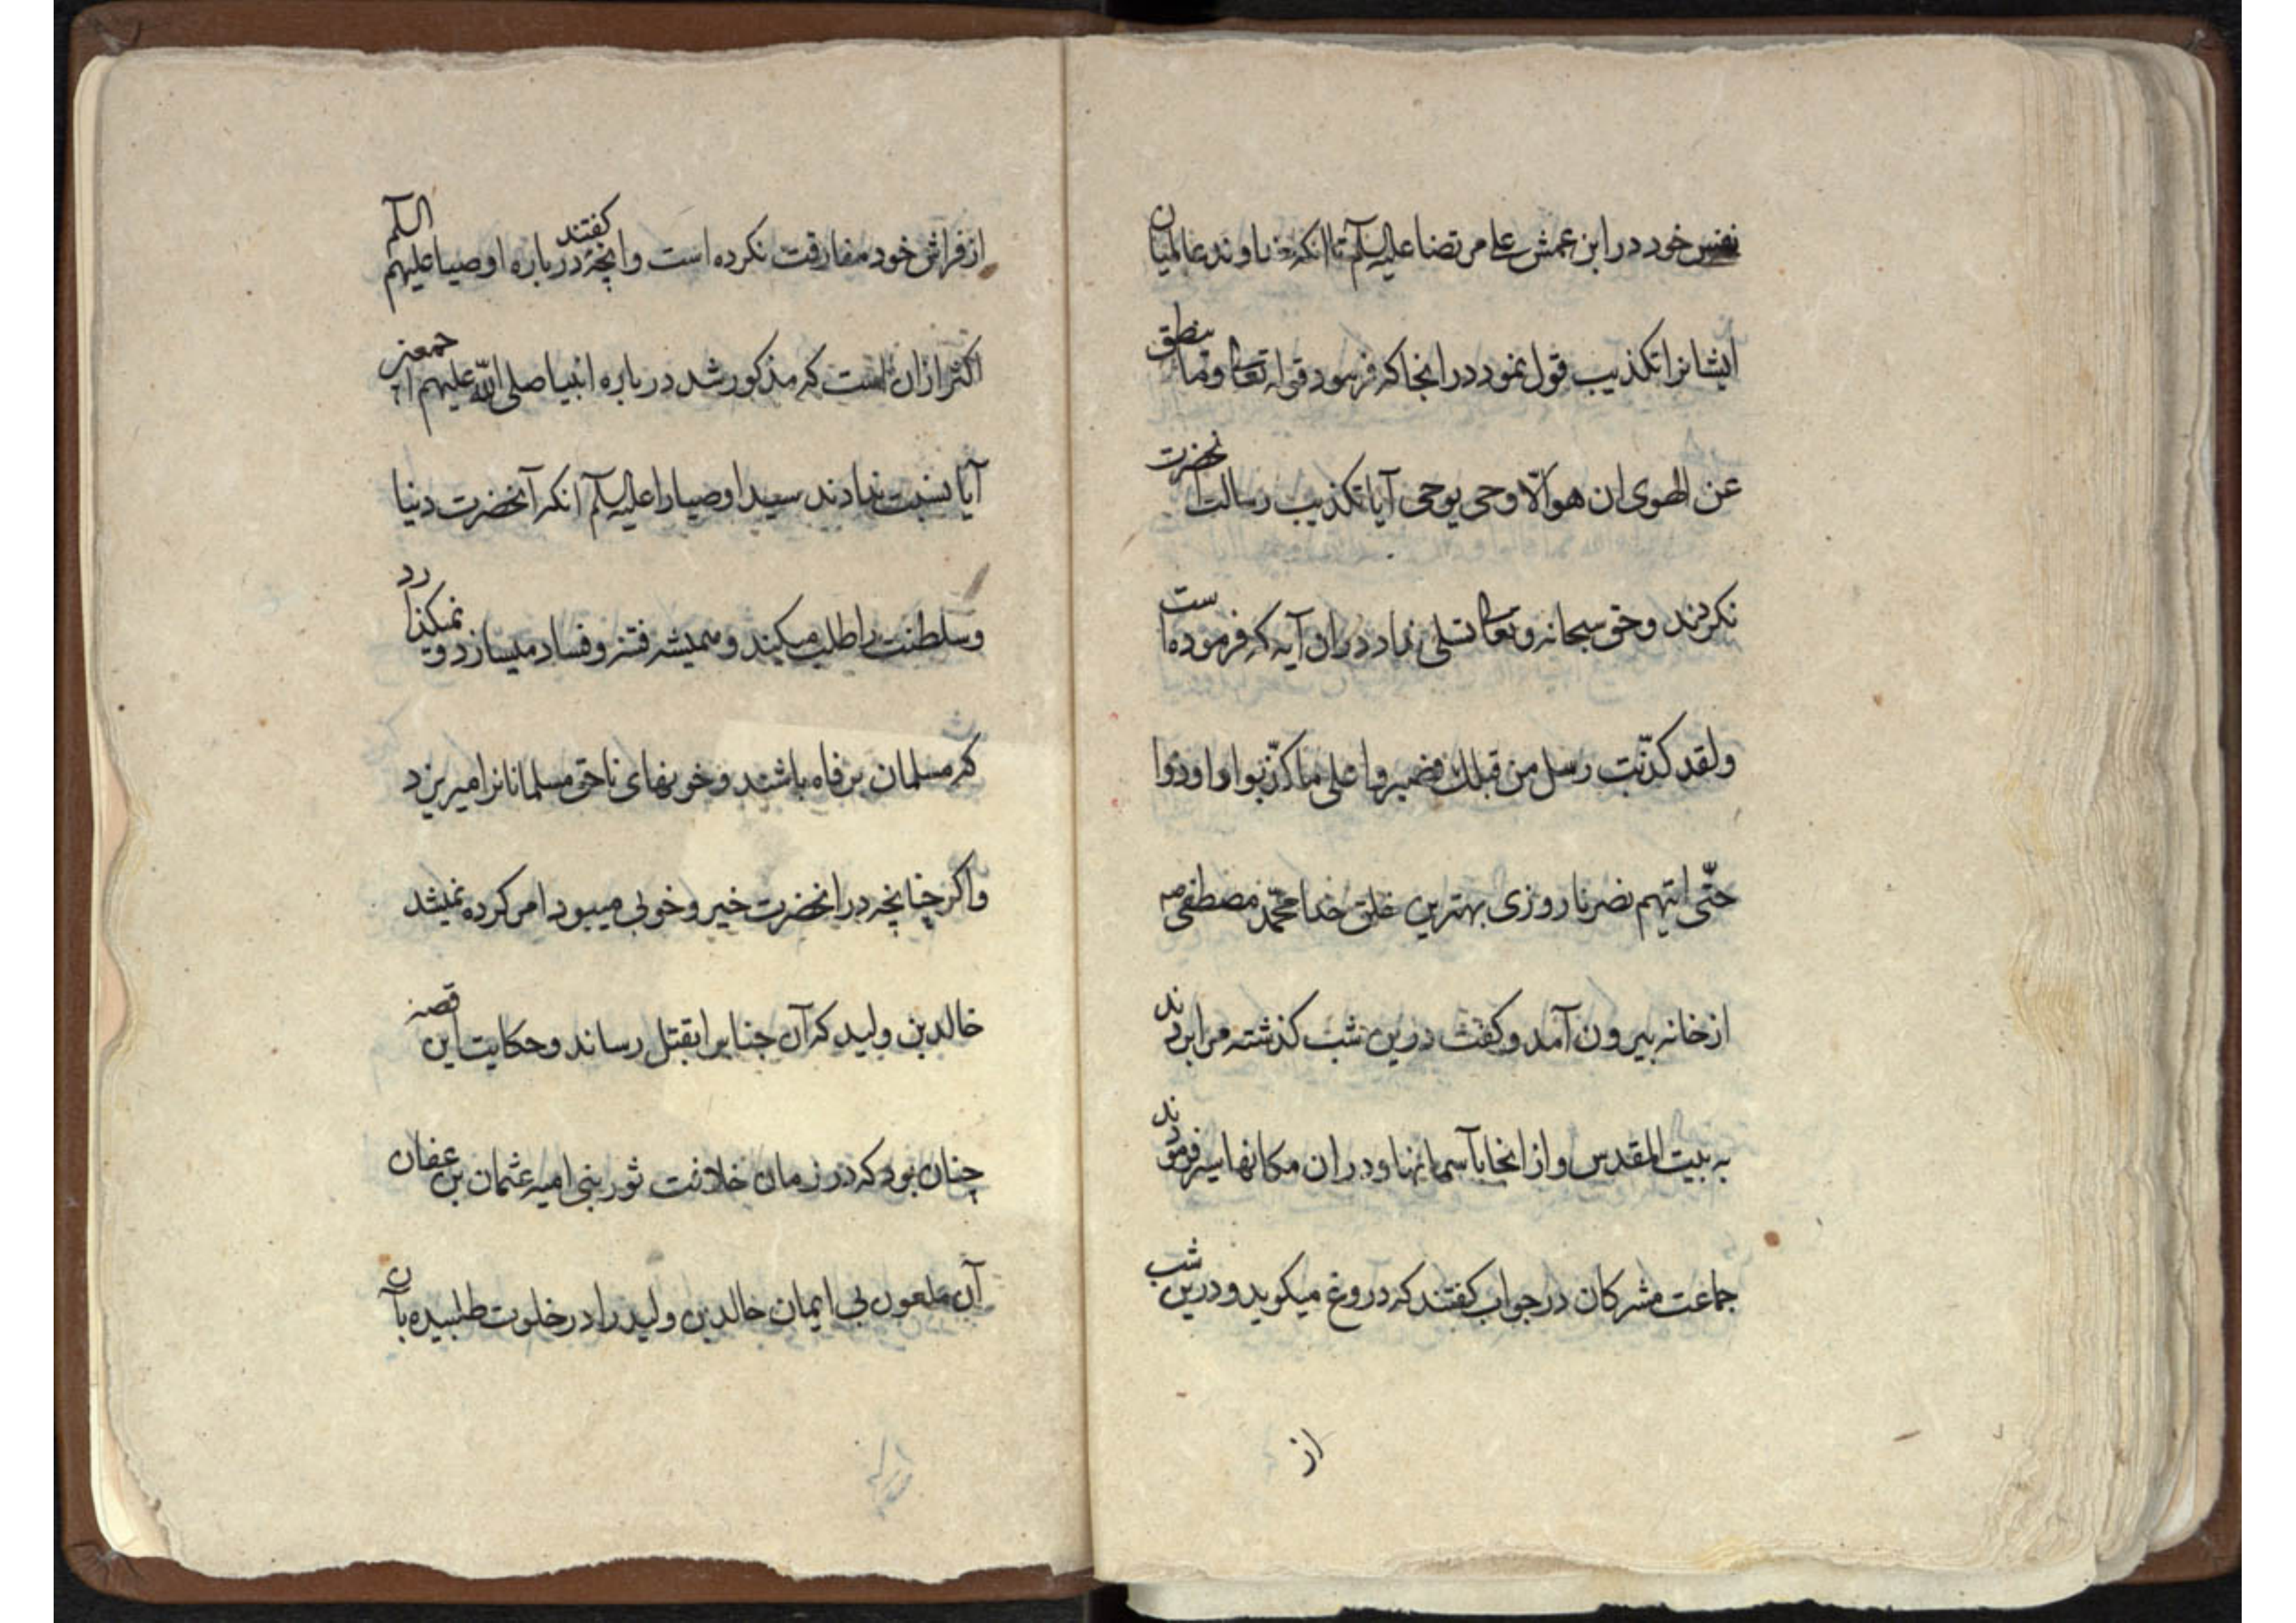 نفس خود در ابن عمش علی مرتضا علیه السلام تا انکه خداوند عالمیان
ایشانرا تکذیب قول نمود در انجا که فرمود قوله تعالی وما ینطق
عن الهوی ان هو الّا وحی یوحی آیا تکذیب رسالت آنحضرت
نکردند وحق سبحانه وتعالی تسلی نداد در ان آیه که فرموده است
ولقد کذّبت رسل من قبلک فصبروا علی ما کذّبوا واوذوا
حتّی اتیهم نصرنا روزی بهترین خلق خدا محمّد مصطفی صه
از خانه بیرون آمد وکفت درین شب کذشته مرا بردند
به بیت المقدس واز انجا باآسمانها ودر ان مکانها سیر فرمودند
جماعت مشرکان در جواب کفتند که دروغ میکوید ودرین شب
از
از فراش خود مفارقت نکرده است وانچه کفتند در باره اوصیا علیهم السلم
اکثر ازان است که مذکور شد در باره انبیا صلی الله علیهم اجمعین
آیا نسبت ندادند سید اوصیا را علیه السلام انکه آنحضرت دنیا
وسلطنت را طلب میکند وهمیشه فتنه وفساد میسازد و نمیکذارد
که مسلمان برفاه باشند وخونهای ناحق مسلمانانرا میریزد
واکر چنانچه در انحضرت خیر وخوبی میبود امر کرده نمیشد
خالد بن ولید که آن جنابرا بقتل رساند وحکایت این قصه
چنان بود که در زمان خلافت ثور بنی امیه عثمان بن عفان
آن ملعون بی ایمان خالد بن ولید را در خلوت طلبیده باآن